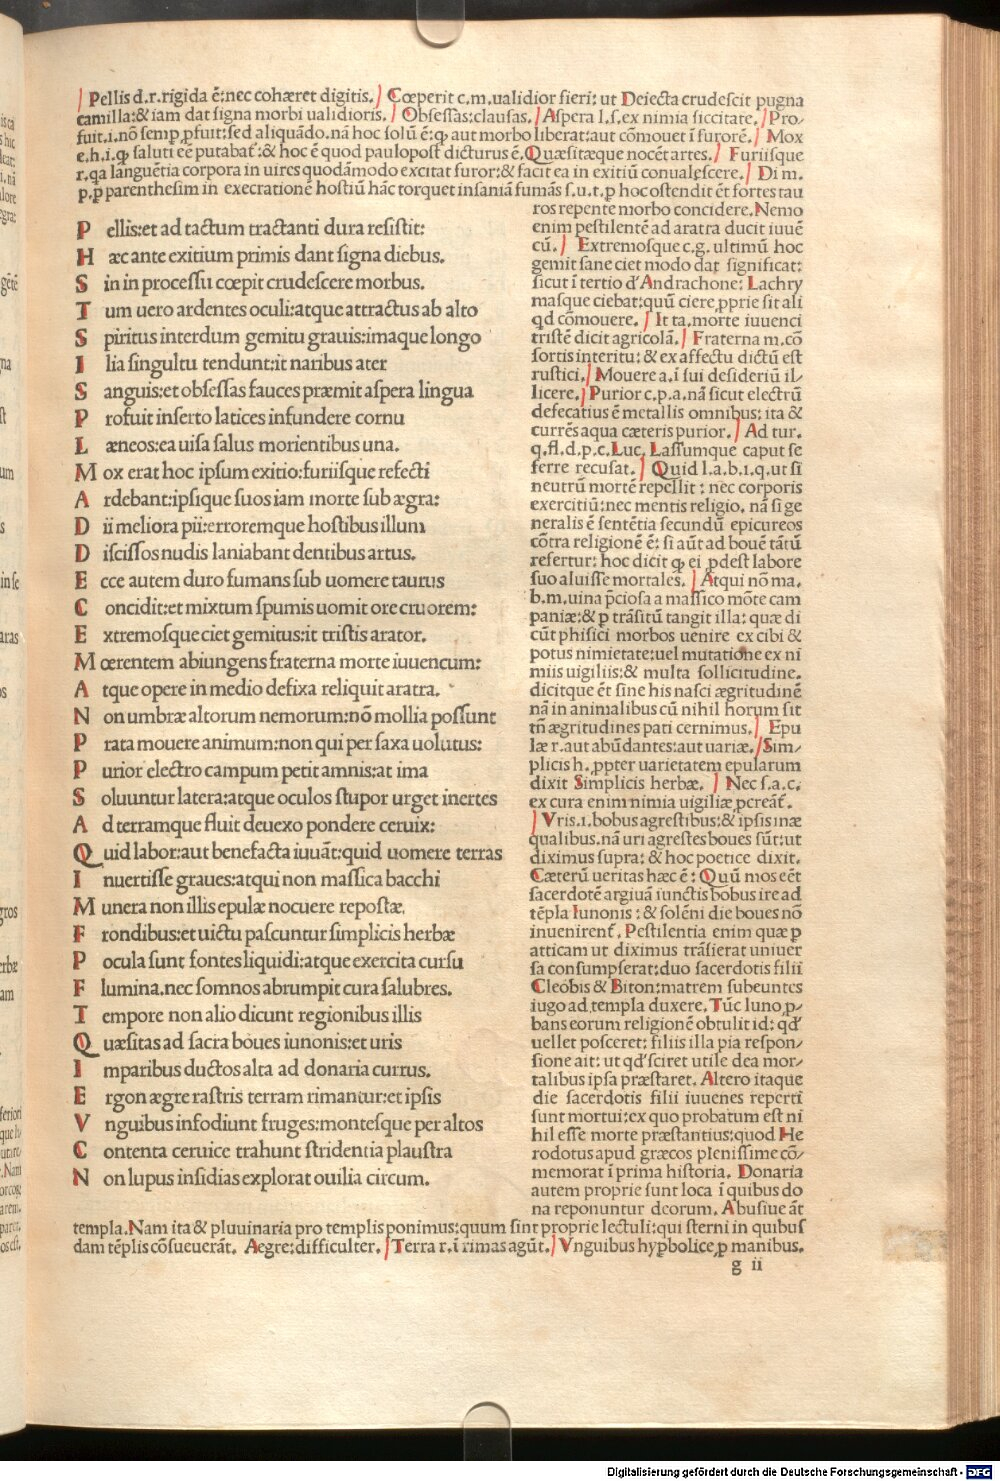 Pellis d.r.rigida ē:nec cohæret digitis. Cœperit c.m.ualidior fieri: ut Deiecta crudescit pugna
camilla:& iam dat signa morbi ualidioris. Obsessas:clausas. Aspera l.s.ex nimia siccitate. Pro/
fuit.i.nō semp ꝓfuit:sed aliquādo.nā hoc solū ē:ꝙ aut morbo liberat:aut cōmouet ī furorē. Mox
e.h.i.ꝙ saluti eē putabat᷑:& hoc ē quod paulopost dicturus ē.Quæsitæque nocēt artes. Furiisque
r.qa languētia corpora in uires quodāmodo excitat furor:& facit ea in exitiū conualescere. Di m.
p.ꝑ parenthesim in execrationē hostiū hāc torquet insaniā fumās s.u.t.ꝑ hoc ostendit ēt fortes tau
ros repente morbo concidere.Nemo
enim pestilentē ad aratra ducit iuuē
cū. Extremosque c.g. ultimū hoc
gemit sane ciet modo dat significat:
sicut ī tertio d'Andrachone: Lachry
masque ciebat:quū ciere ꝓprie sit ali
qd cōmouere. It ta.morte iuuenci
tristē dicit agricolā. Fraterna m.cō
sortis interitu: & ex affectu dictū est
rustici. Mouere a.ī sui desideriū il/
licere. Purior c.p.a.nā sicut electrū
defecatius ē metallis omnibus: ita &
currēs aqua cæteris purior. Ad tur.
q.fl.d.p.c.Luc. Lassumque caput se
ferre recusat. Quid l.a.b.i.q.ut si
neutrū mortē repellit : nec corporis
exercitiū:nec mentis religio. nā si ge
neralis ē sentētia secundū epicureos
cōtra religionē ē: si aūt ad bouē tātū
refertur: hoc dicit ꝙ ei ꝓdest labore
suo aluisse mortales. Atqui nō ma.
b.m.uina p̄ciosa a massico mōte cam
paniæ:& ꝑ trāsitū tangit illa: quæ di
cūt phisici morbos uenire ex cibi &
potus nimietate:uel mutatione ex ni
miis uigiliis:& multa sollicitudine.
dicitque ēt sine his nasci ægritudinē
nā in animalibus cū nihil horum sit
tn̄ ægritudines pati cernimus. Epu
læ r.aut abūdantes:aut uariæ. Sim/
plicis h.ꝓpter uarietatem epularum
dixit Simplicis herbæ. Nec s.a.c.
ex cura enim nimia uigiliæ ꝓcreāt᷑.
Vris.i.bobus agrestibus:& ipsis inæ
qualibus.nā uri agrestes boues sūt:ut
diximus supra: & hoc poetice dixit.
Cæterū ueritas hæc ē : Quū mos eēt
sacerdotē argiuā iunctis bobus ire ad
tēpla Iunonis : & solēni die boues nō
inuenirent᷑. Pestilentia enim quæ ꝑ
atticam ut diximus trāsierat uniuer
sa consumpserat:duo sacerdotis filii
Cleobis & Biton:matrem subeuntes
iugo ad templa duxere. Tūc Iuno ꝓ/
bans eorum religionē obtulit id: qd'
uellet posceret: filiis illa pia respon/
sione ait: ut qd'sciret utile dea mor/
talibus ipsa præstaret. Altero itaque
die sacerdotis filii iuuenes reperti
sunt mortui:ex quo probatum est ni
hil esse morte præstantius:quod He
rodotus apud græcos plenissime cō/
memorat ī prima historia. Donaria
autem proprie sunt loca ī quibus do
na reponuntur deorum. Abusiue āt
P ellis:et ad tactum tractanti dura resistit:
H æc ante exitium primis dant signa diebus.
S in in processu cœpit crudescere morbus.
T um uero ardentes oculi:atque attractus ab alto
S piritus interdum gemitu grauis:imaque longo
I lia singultu tendunt:it naribus ater
S anguis:et obsessas fauces præmit aspera lingua
P rofuit inserto latices infundere cornu
L æneos:ea uisa salus morientibus una.
M ox erat hoc ipsum exitio:furiisque refecti
A rdebant:ipsique suos iam morte sub ægra:
D ii meliora pii:erroremque hostibus illum
D iscissos nudis laniabant dentibus artus.
E cce autem duro fumans sub uomere taurus
C oncidit:et mixtum spumis uomit ore cruorem:
E xtremosque ciet gemitus:it tristis arator.
M œrentem abiungens fraterna morte iuuencum:
A tque opere in medio defixa reliquit aratra.
N on umbræ altorum nemorum:nō mollia possunt
P rata mouere animum:non qui per saxa uolutus:
P urior electro campum petit amnis:at ima
S oluuntur latera:atque oculos stupor urget inertes
A d terramque fluit deuexo pondere ceruix:
Q uid labor:aut benefacta iuuāt:quid uomere terras
I nuertisse graues:atqui non massica bacchi
M unera non illis epulæ nocuere repostæ.
F rondibus:et uictu pascuntur simplicis herbæ
P ocula sunt fontes liquidi:atque exercita cursu
F lumina.nec somnos abrumpit cura salubres.
T empore non alio dicunt regionibus illis
Q uæsitas ad sacra boues iunonis:et uris
I mparibus ductos alta ad donaria currus.
E rgon ægre rastris terram rimantur:et ipsis
V nguibus infodiunt fruges:montesque per altos
C ontenta ceruice trahunt stridentia plaustra
N on lupus insidias explorat ouilia circum.
templa.Nam ita & pluuinaria pro templis ponimus:quum sint proprie lectuli:qui sterni in quibus
dam tēplis cōsueuerāt. Aegre:difficulter. Terra r.ī rimas agūt. Vnguibus hyꝑbolice ꝓ manibus.
g ii
Digitalisierung gefördert durch die Deutsche Forschungsgemeinschaft - DFG